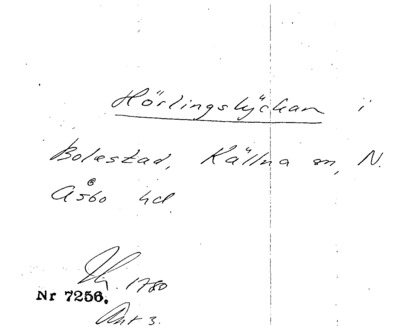 Hörlingslyckan i
Bolestad, Källna sn, N.
Åsbo hd
1780
Nr 7256.
Akt 3.